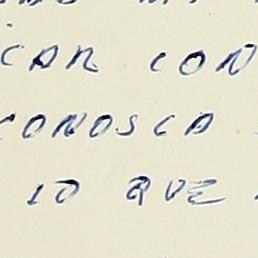 CAR CON
CONOSCA
LO QUE